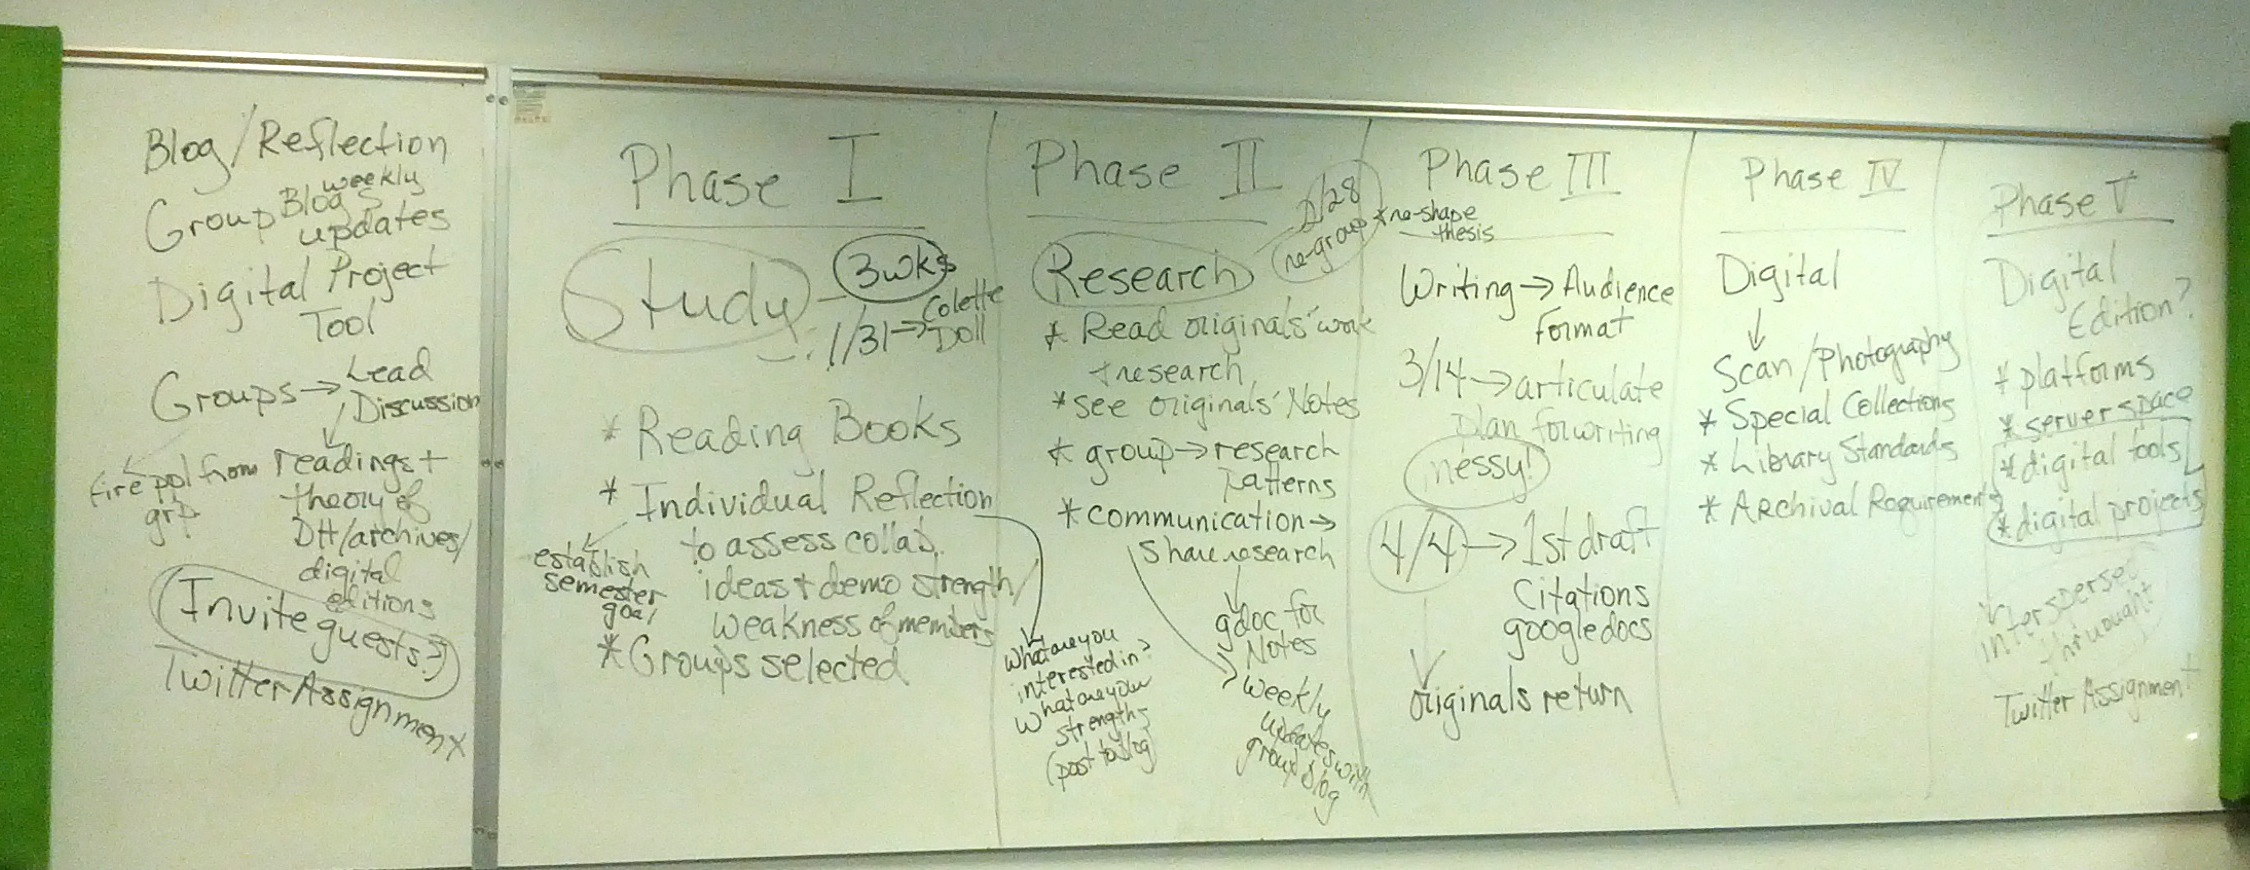 Blog/Reflection
Group Blogs weekly
updates
Digital Project
Tool
Groups → Lead
Discussion
fire ppl from
grp
readings +
theory of
DH/archives/
digital
editions
Invite guests?
Twitter Assignment
Phase I
Study
3wks
1/31 → Colette
Doll
* Reading Books
* Individual Reflection
to assess collab.
ideas + demo strength/
weakness of members
establish
semester
goal
* Groups selected
What are you
interested in?
What are your
strengths
(post to blog)
Phase II
Research
2/28
re-group
* re-shape
thesis
* Read originals' work
+ research
* see originals' Notes
* group → research
patterns
* communication →
share research
gdoc for
Notes
weekly
updates with
group blog
Phase III
Writing → Audience
Format
3/14 → articulate
plan for writing
messy!
4/4 → 1st draft
Citations
googledocs
originals return
Phase IV
Digital
Scan/Photography
* Special Collections
* Library Standards
* Archival Requirements
Phase V
Digital
Edition?
* platforms
* server space
* digital tools
* digital projects
interspersed
thruought
Twitter Assignment